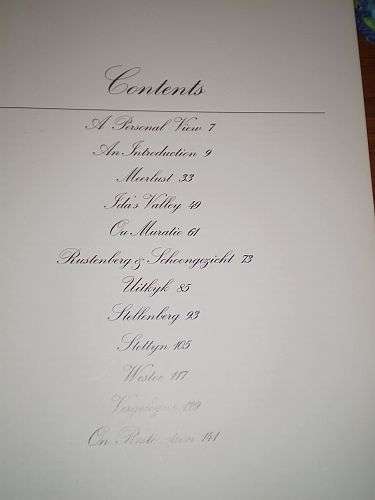 Contents
A Personal View 7
An Introduction 9
Meerlust 33
Ida's Valley 49
Ou Muratie 61
Rustenberg & Schoongezicht 73
Uitkyk 85
Stellenberg 93
Stettyn 105
Weltevreden 117
On 141